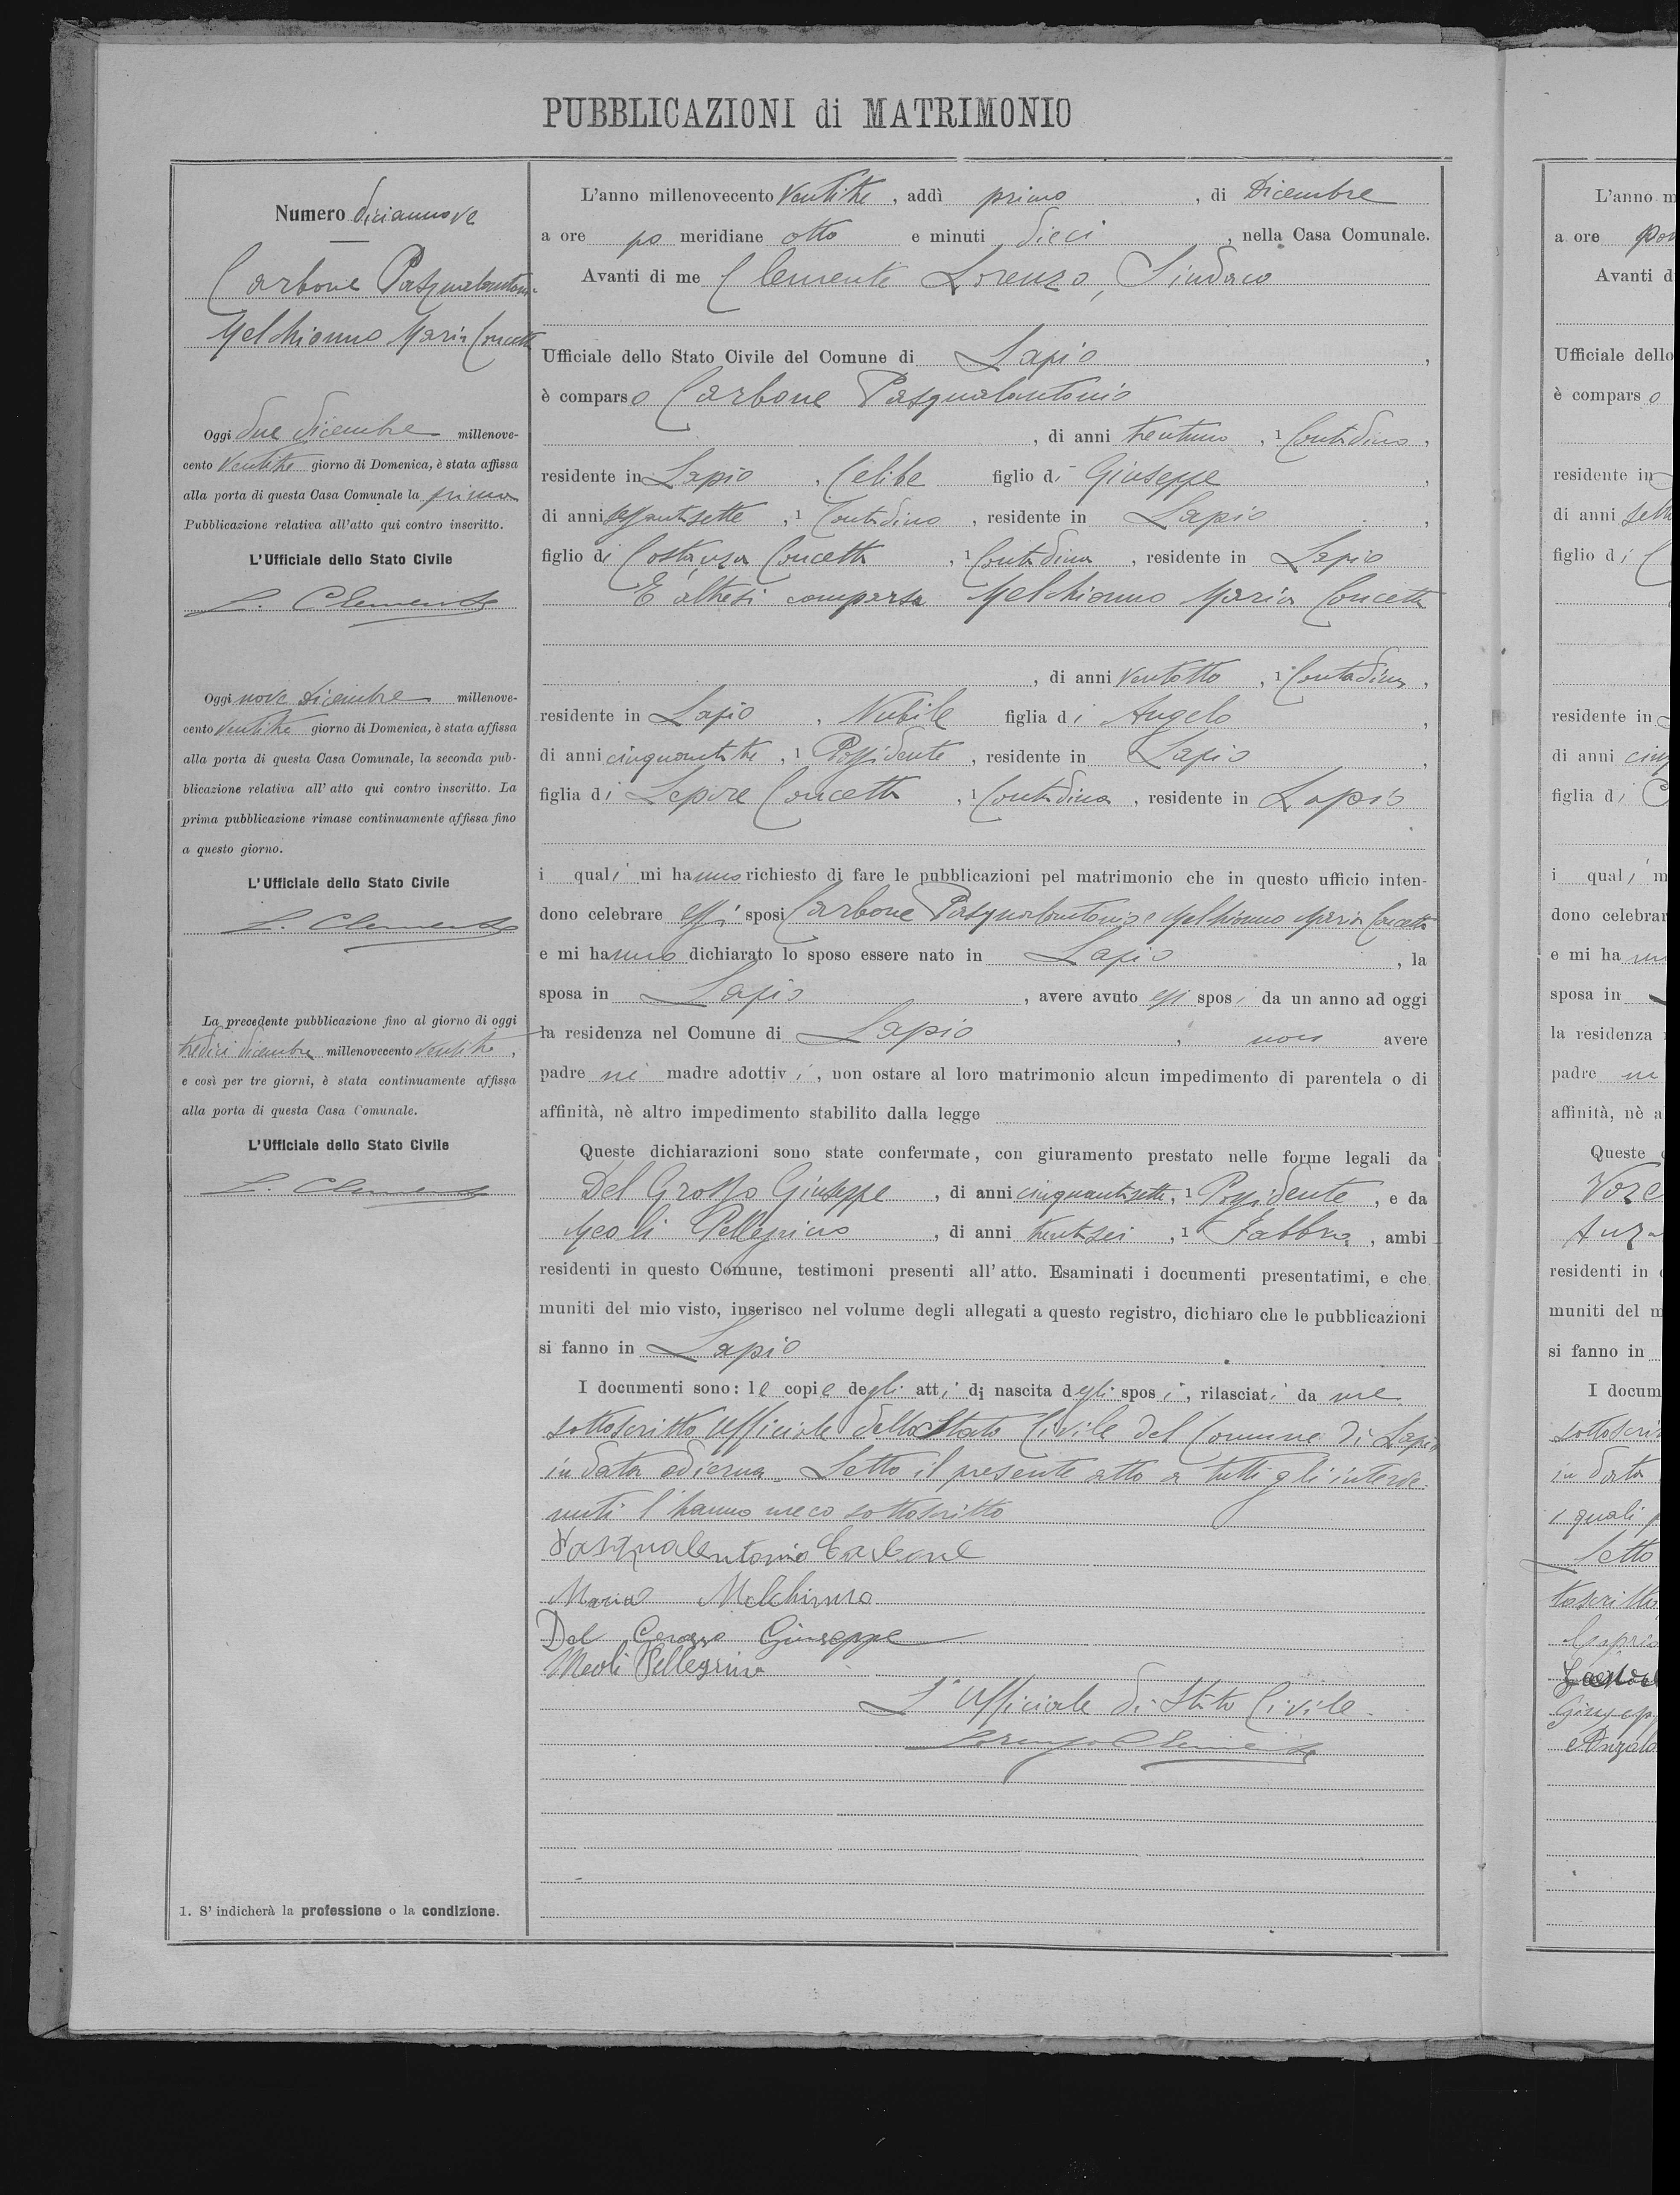 PUBBLICAZIONI di MATRIMONIO
Numero diciannove
Carbone Pasqualantoni
Melchionno Maria Concetta
Oggi due dicembre millenove-
cento ventitre giorno di Domenica, è stata affissa
alla porta di questa Casa Comunale la prima
Pubblicazione relativa all'atto qui contro inscritto.
L'Ufficiale dello Stato Civile
L. Clemente
Oggi nove dicembre millenove-
cento ventitre giorno di Domenica, è stata affissa
alla porta di questa Casa Comunale, la seconda pub-
blicazione relativa all' atto qui contro inscritto. La
prima pubblicazione rimase continuamente affissa fino
a questo giorno.
L'Ufficiale dello Stato Civile
L. Clemente
La precedente pubblicazione fino al giorno di oggi
tredici dicembre millenovecento ventitre,
e così per tre giorni, è stata continuamente affissa
alla porta di questa Casa Comunale.
L'Ufficiale dello Stato Civile
L. Clemente
1. S' indicherà la professione o la condizione.
L'anno millenovecento ventitre, addì primo, di Dicembre
a ore po meridiane otto e minuti dieci, nella Casa Comunale.
Avanti di me Clemente Lorenzo, Sindaco
Ufficiale dello Stato Civile del Comune di Lapio,
è comparso Carbone Pasqualantonio
, di anni trentuno, 1 Contadino,
residente in Lapio, Celibe figlio di Giuseppe,
di anni sessantasette, 1 Contadino, residente in Lapio,
figlio di Costanza Concetta, 1 Contadina, residente in Lapio
E' altresì comparsa Melchionno Maria Concetta
, di anni ventotto, 1 Contadina,
residente in Lapio, Nubile figlia di Angelo,
di anni cinquantatre, 1 Possidente, residente in Lapio,
figlia di Lepore Concetta, 1 Contadina, residente in Lapio
i quali mi hanno richiesto di fare le pubblicazioni pel matrimonio che in questo ufficio inten-
dono celebrare essi sposi Carbone Pasqualantonio e Melchionno Maria Concetta
e mi hanno dichiarato lo sposo essere nato in Lapio, la
sposa in Lapio, avere avuto essi sposi da un anno ad oggi
la residenza nel Comune di Lapio, non avere
padre nè madre adottivi, non ostare al loro matrimonio alcun impedimento di parentela o di
affinità, nè altro impedimento stabilito dalla legge
Queste dichiarazioni sono state confermate, con giuramento prestato nelle forme legali da
Del Grosso Giuseppe, di anni cinquantasette, 1 Possidente, e da
Meoli Pellegrino, di anni trentasei, 1 Fabbro, ambi
residenti in questo Comune, testimoni presenti all' atto. Esaminati i documenti presentatimi, e che
muniti del mio visto, inserisco nel volume degli allegati a questo registro, dichiaro che le pubblicazioni
si fanno in Lapio
I documenti sono: le copie degli atti di nascita degli sposi, rilasciati da me
sottoscritto Ufficiale dello Stato Civile del Comune di Lapio
in data odierna. Letto il presente atto a tutti gli interve-
nuti l'hanno meco sottoscritto
Pasqualantonio Carbone
Maria Melchionno
Del Grosso Giuseppe
Meoli Pellegrino
L'Ufficiale di Stato Civile
Lorenzo Clemente
L'anno m
a ore
Avanti d
Ufficiale dello
è comparso
residente in
di anni
figlio di
residente in
di anni
figlia di
i quali m
dono celebrar
e mi ha
sposa in
la residenza
padre
affinità, nè a
Queste
residenti in
muniti del m
si fanno in
I docum
sottoscrit
in data
i quali
Letto